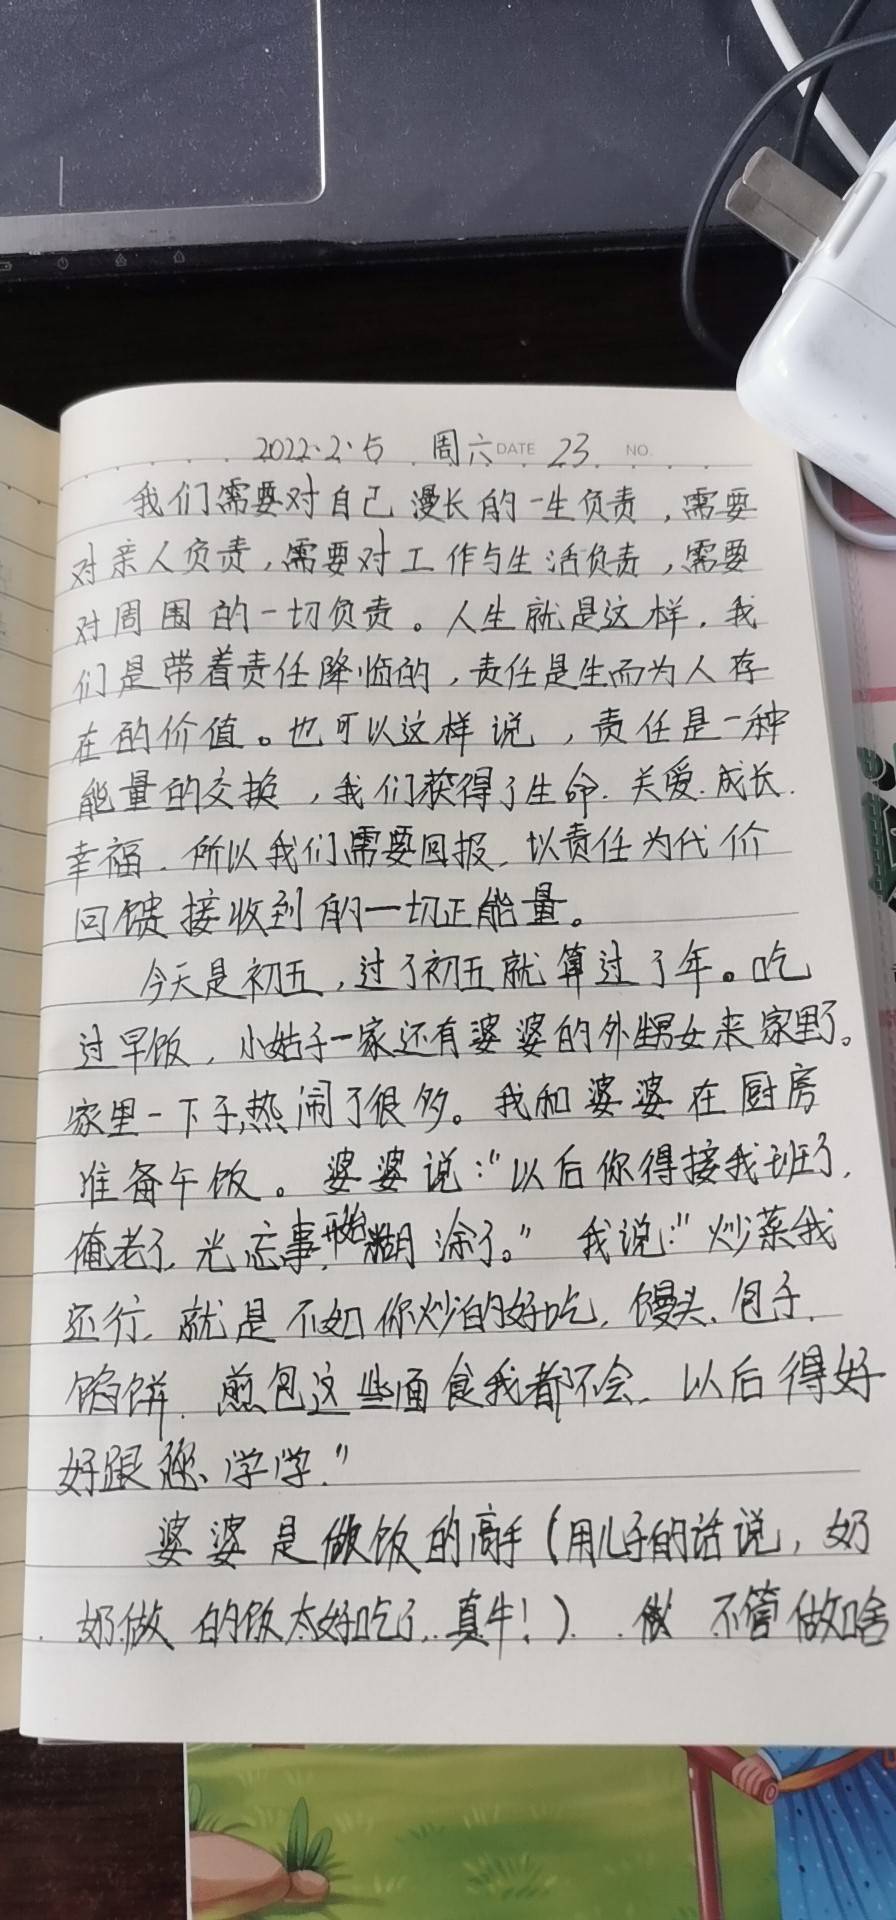 2022.2.5 周六 DATE 23 NO.
我们需要对自己漫长的一生负责，需要
对亲人负责，需要对工作与生活负责，需要
对周围的一切负责。人生就是这样，我
们是带着责任降临的，责任是生而为人存
在的价值。也可以这样说，责任是一种
能量的交换，我们获得了生命.关爱.成长.
幸福.所以我们需要回报.以责任为代价
回馈接收到的一切正能量。
今天是初五，过了初五就算过了年。吃
过早饭，小姑子一家还有婆婆的外甥女来家里了。
家里一下子热闹了很多。我和婆婆在厨房
准备午饭。婆婆说："以后你得接我班了，
俺老了，光忘事，开始糊涂了。"我说："炒菜我
还行，就是不如你炒的好吃，馒头、包子、
馅饼、煎包这些面食我都不会，以后得好
好跟您学学."
婆婆是做饭的高手(用儿子的话说，奶
奶做的饭太好吃了，真牛！).做 不管做啥